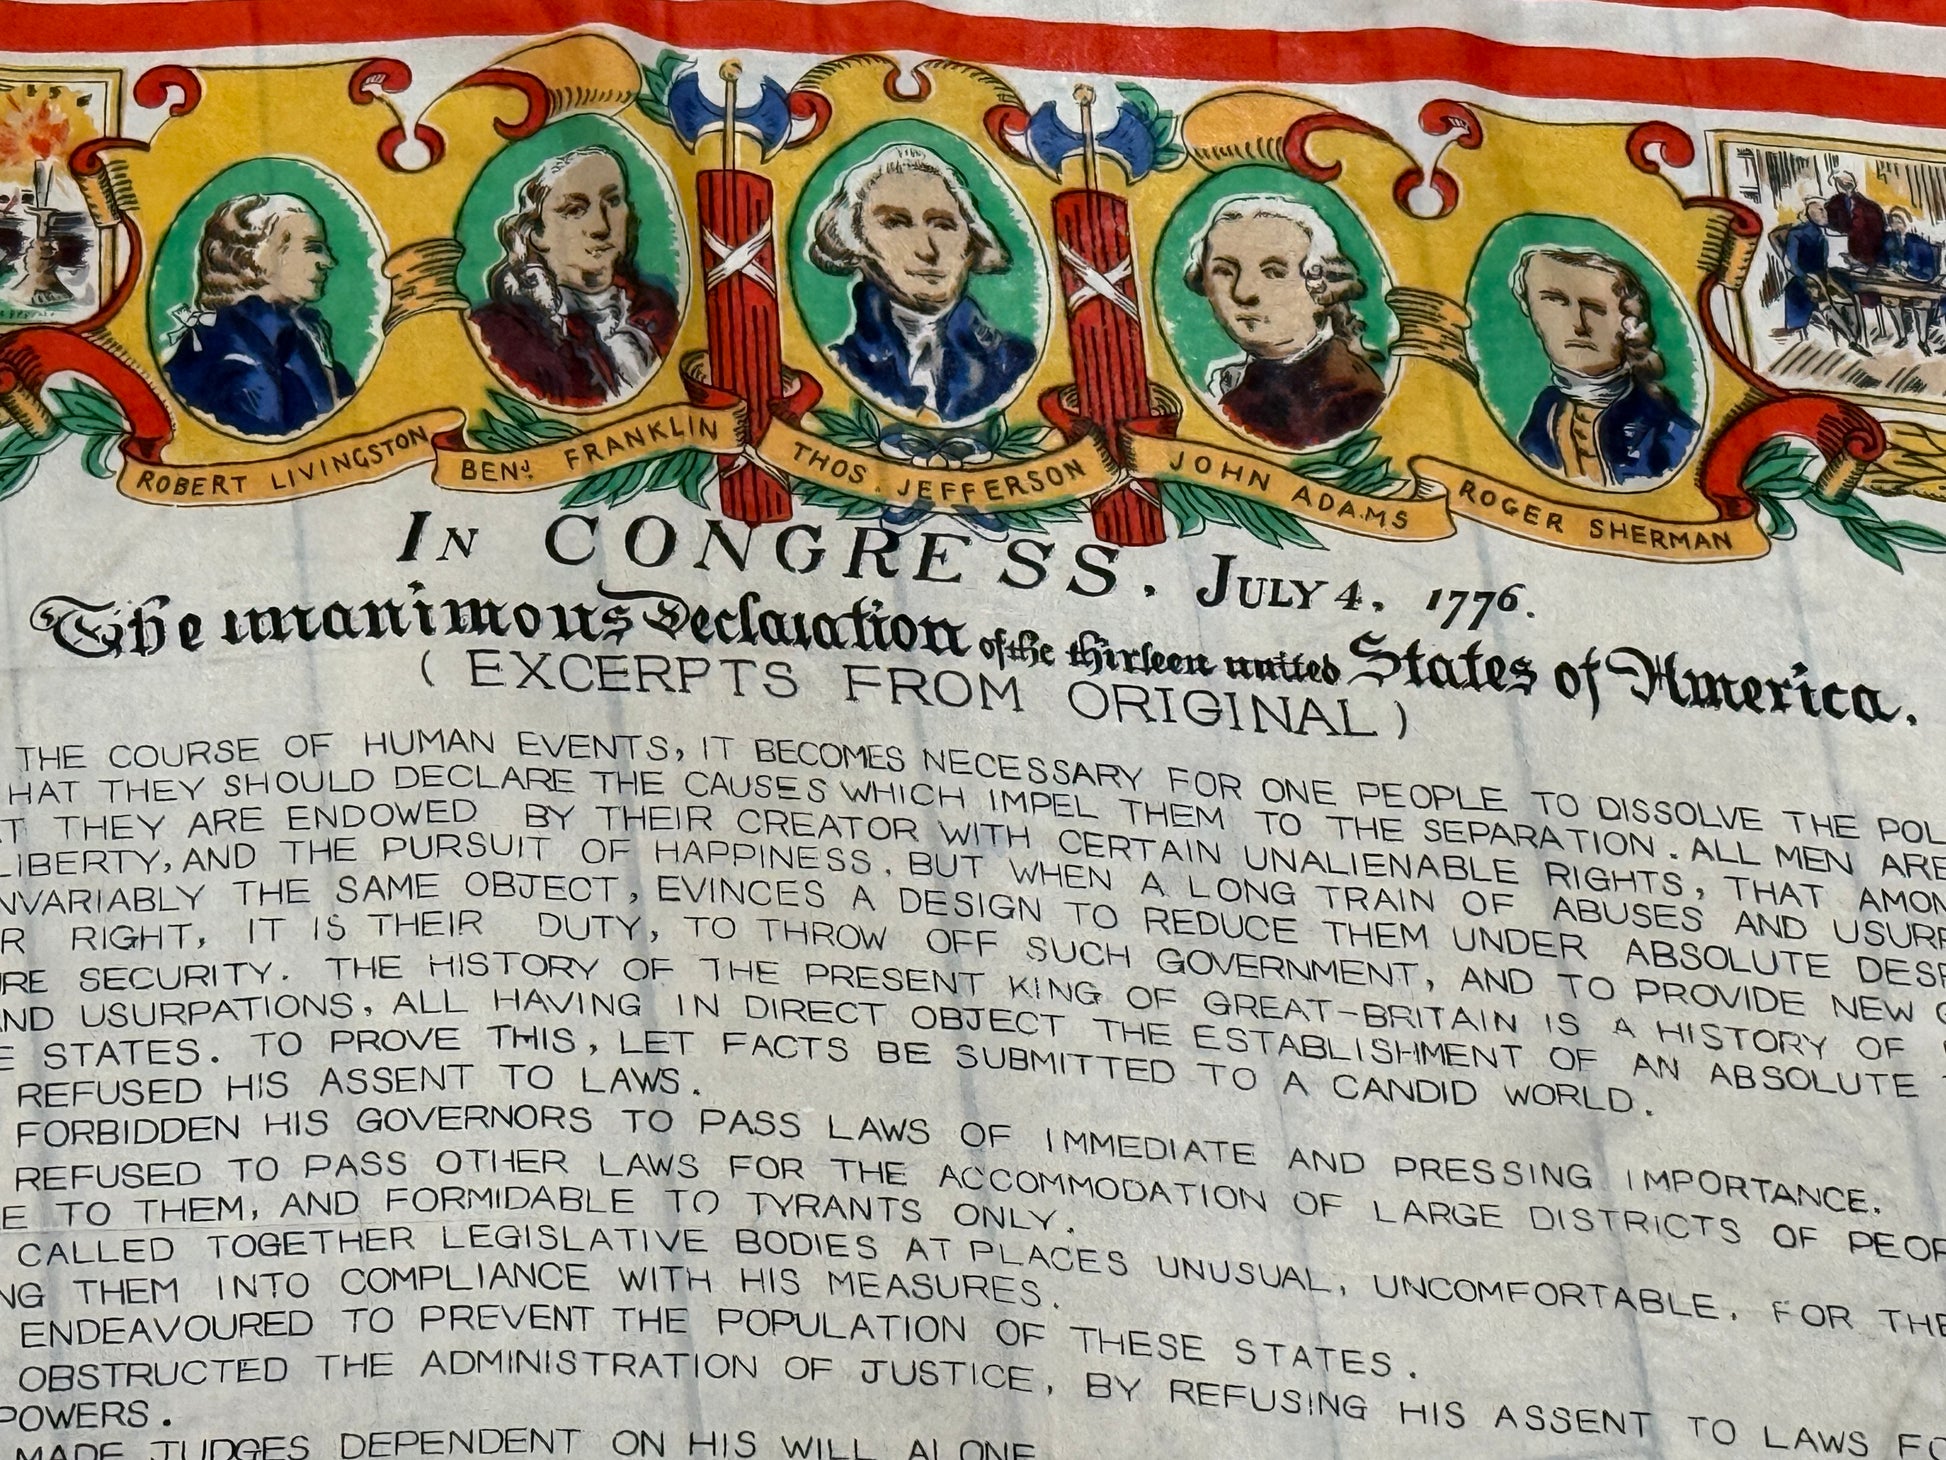 ROBERT LIVINGSTON
BENJ. FRANKLIN
THOS. JEFFERSON
JOHN ADAMS
ROGER SHERMAN
IN CONGRESS, JULY 4, 1776.
The unanimous Declaration of the thirteen united States of America.
(EXCERPTS FROM ORIGINAL)
THE COURSE OF HUMAN EVENTS, IT BECOMES NECESSARY FOR ONE PEOPLE TO DISSOLVE THE
THEY SHOULD DECLARE THE CAUSES WHICH IMPEL THEM TO THE SEPARATION. ALL MEN ARE
THEY ARE ENDOWED BY THEIR CREATOR WITH CERTAIN UNALIENABLE RIGHTS, THAT
LIBERTY, AND THE PURSUIT OF HAPPINESS. BUT WHEN A LONG TRAIN OF ABUSES AND
THE SAME OBJECT, EVINCES A DESIGN TO REDUCE THEM UNDER ABSOLUTE
RIGHT, IT IS THEIR DUTY, TO THROW OFF SUCH GOVERNMENT, AND TO PROVIDE NEW
SECURITY. THE HISTORY OF THE PRESENT KING OF GREAT-BRITAIN IS A HISTORY OF
USURPATIONS, ALL HAVING IN DIRECT OBJECT THE ESTABLISHMENT OF AN ABSOLUTE
STATES. TO PROVE THIS, LET FACTS BE SUBMITTED TO A CANDID WORLD.
REFUSED HIS ASSENT TO LAWS.
FORBIDDEN HIS GOVERNORS TO PASS LAWS OF IMMEDIATE AND PRESSING IMPORTANCE.
REFUSED TO PASS OTHER LAWS FOR THE ACCOMMODATION OF LARGE DISTRICTS OF
TO THEM, AND FORMIDABLE TO TYRANTS ONLY.
CALLED TOGETHER LEGISLATIVE BODIES AT PLACES UNUSUAL, UNCOMFORTABLE, FOR THE
THEM INTO COMPLIANCE WITH HIS MEASURES.
ENDEAVOURED TO PREVENT THE POPULATION OF THESE STATES.
OBSTRUCTED THE ADMINISTRATION OF JUSTICE, BY REFUSING HIS ASSENT TO LAWS
POWERS.
MADE JUDGES DEPENDENT ON HIS WILL ALONE